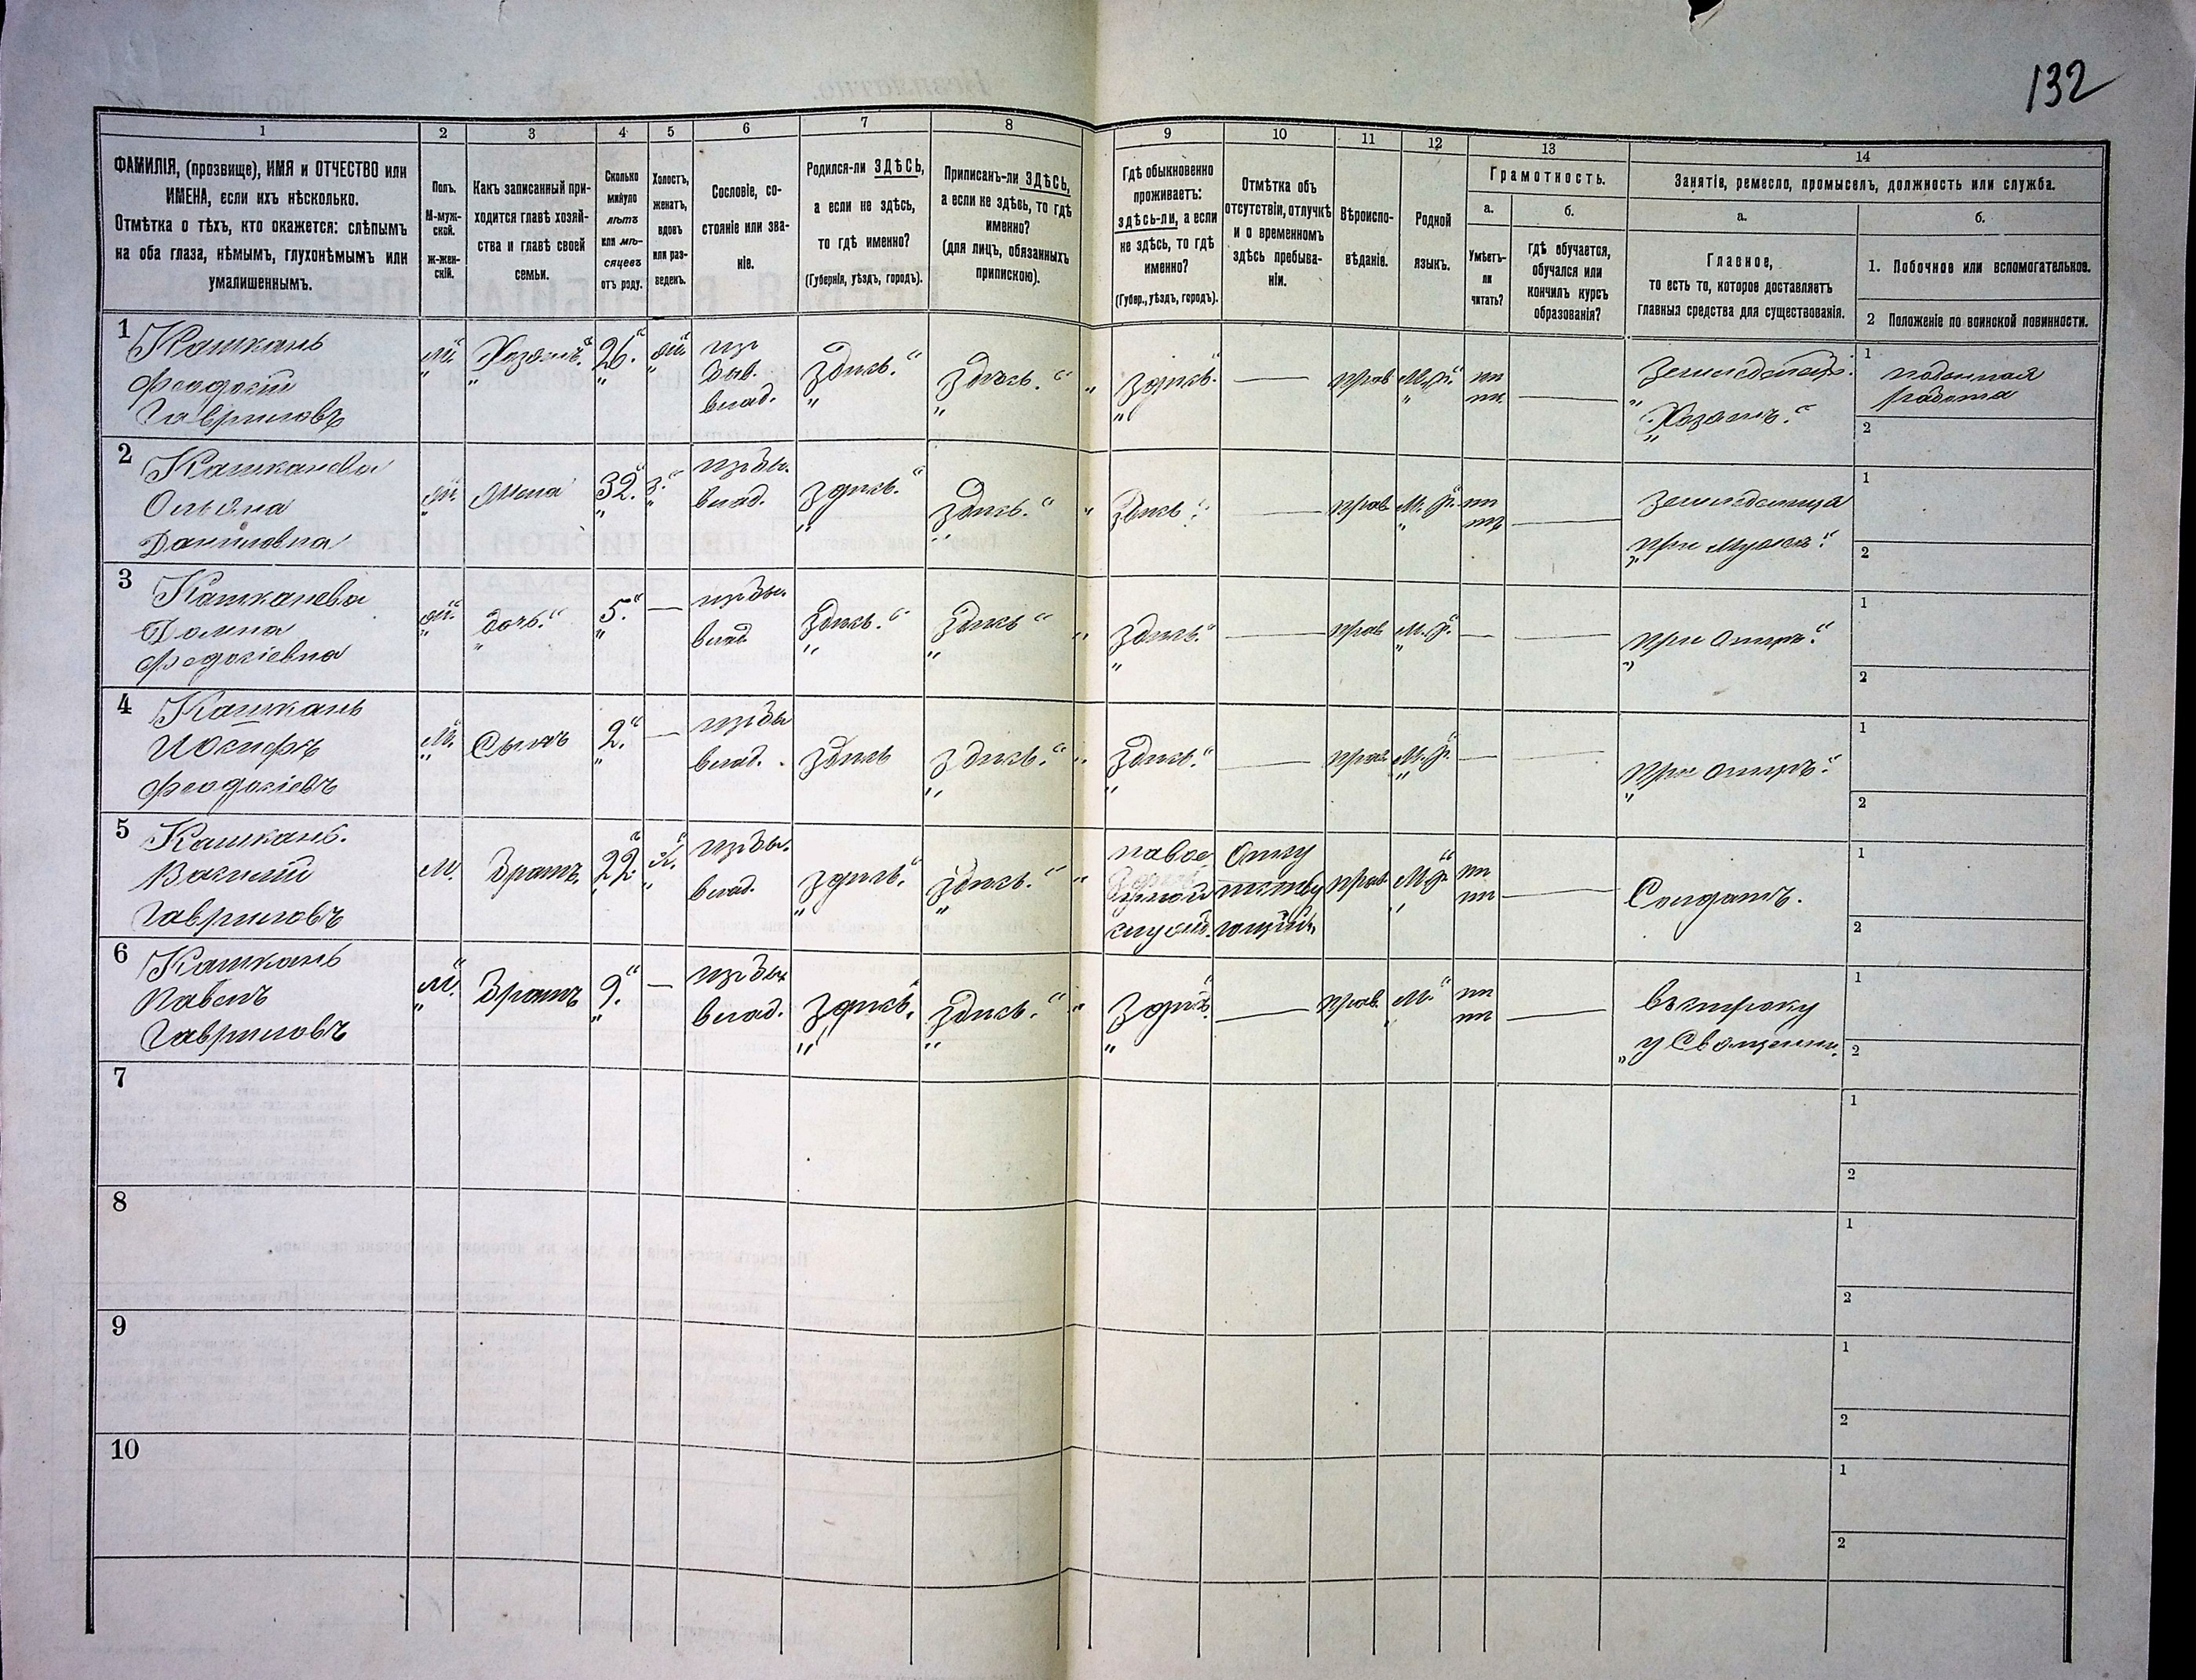 132
1
2
3
4
5
6
7
8
9
10
11
12
13
14
ФАМИЛІЯ, (прозвище), ИМЯ и ОТЧЕСТВО или
ИМЕНА, если ихъ нѣсколько.
Отмѣтка о тѣхъ, кто окажется: слѣпымъ
на оба глаза, нѣмымъ, глухонѣмымъ или
умалишеннымъ.
Полъ.
М-муж-
ской.
Ж-жен-
скій.
Какъ записанный при-
ходится главѣ хозяй-
ства и главѣ своей
семьи.
Сколько
минуло
лѣтъ
или мѣ-
сяцевъ
отъ роду.
Холостъ,
женатъ,
вдовъ
или раз-
веденъ.
Сословіе, со-
стояніе или зва-
ніе.
Родился-ли ЗДѢСЬ,
а если не здѣсь,
то гдѣ именно?
(Губернія, уѣздъ, городъ).
Приписанъ-ли ЗДѢСЬ,
а если не здѣсь, то гдѣ
именно?
(для лицъ, обязанныхъ
припискою).
Гдѣ обыкновенно
проживаетъ:
здѣсь-ли, а если
не здѣсь, то гдѣ
именно?
(Губер., уѣздъ, городъ).
Отмѣтка объ
отсутствіи, отлучкѣ
и о временномъ
здѣсь пребыва-
ніи.
Вѣроиспо-
вѣданіе.
Родной
языкъ.
Грамотность.
а.
Умѣетъ-
ли
читать?
б.
Гдѣ обучается,
обучался или
кончилъ курсъ
образованія?
Занятіе, ремесло, промыселъ, должность или служба.
а.
Главное,
то есть то, которое доставляетъ
главныя средства для существованія.
б.
1. Побочное или вспомогательное.
2 Положеніе по воинской повинности.
1
Кашканъ
Феодосій
Гавриловъ
м.
Хозяинъ
26.
из
быв.
влад.
здѣсь.
здѣсь.
здѣсь.
прав
Хозяинъ.
1
работа
2
2
Кашканева
Даниловна
Жена
32.
з.
из бы.
влад.
здѣсь.
здѣсь.
здѣсь
прав
при мужѣ.
1
2
3
Кашканева
Домна
Федосіевна
дочь.
5.
из бы.
влад.
здѣсь.
здѣсь
здѣсь.
прав
при отцѣ.
1
2
4
Кашканъ
Іосифъ
Феодосіевъ
м.
Сынъ
2.
из бы
влад.
здѣсь
здѣсь.
здѣсь.
прав.
при отцѣ.
1
2
5
Кашканъ.
Василій
Гавриловъ
м.
Братъ
22
из бы.
влад.
здѣсь.
здѣсь.
прав.
Солдатъ.
1
2
6
Кашканъ
Павелъ
Гавриловъ
м.
Братъ
9.
из бы.
влад.
здѣсь.
здѣсь.
здѣсь.
прав.
М.
1
2
7
1
2
8
1
2
9
1
2
10
1
2